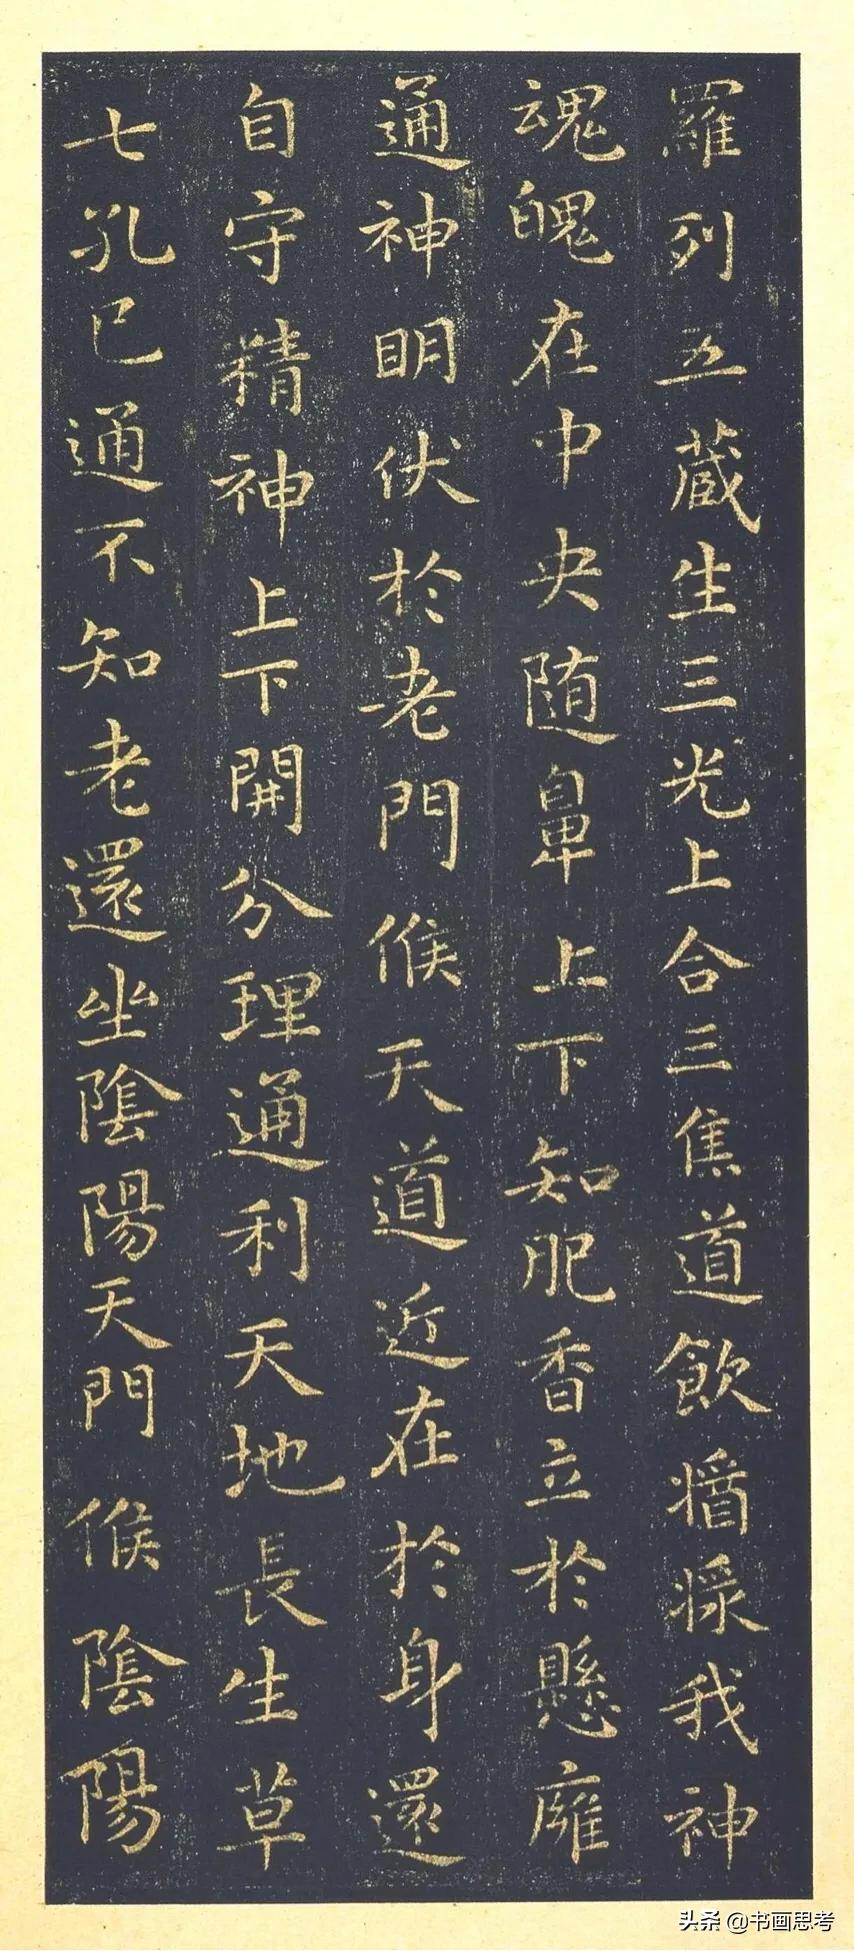 羅列五蔵生三光上合三焦道飲醬漿我神
魂魄在中央随鼻上下知肥香立於懸廱
通神明伏於老門候天道近在於身還
自守精神上下開分理通利天地長生草
七孔已通不知老還坐陰陽天門候陰陽
头条 @书画思考